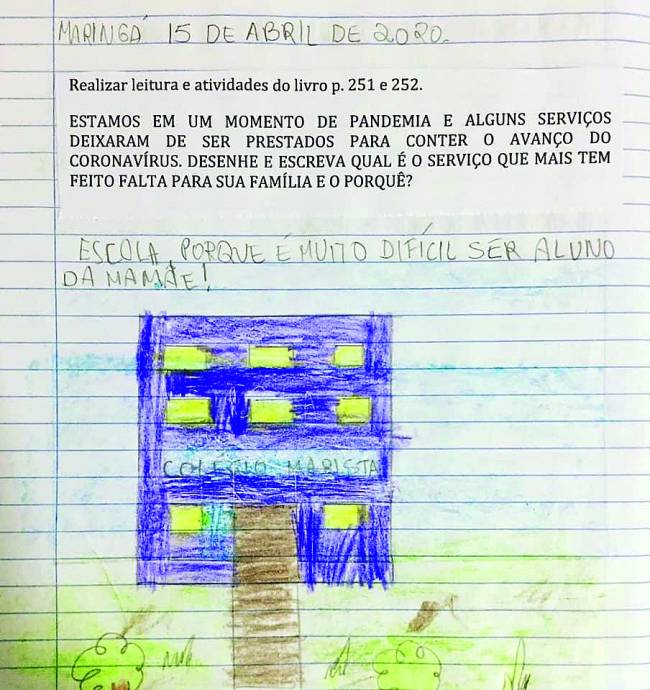 MARINGÁ 15 DE ABRIL DE 2020.
Realizar leitura e atividades do livro p. 251 e 252.
ESTAMOS EM UM MOMENTO DE PANDEMIA E ALGUNS SERVIÇOS
DEIXARAM DE SER PRESTADOS PARA CONTER O AVANÇO DO
CORONAVÍRUS. DESENHE E ESCREVA QUAL É O SERVIÇO QUE MAIS TEM
FEITO FALTA PARA SUA FAMÍLIA E O PORQUÊ?
ESCOLA, PORQUE É MUITO DIFÍCIL SER ALUNO
DA MAMÃE!
COLÉGIO MARISTA